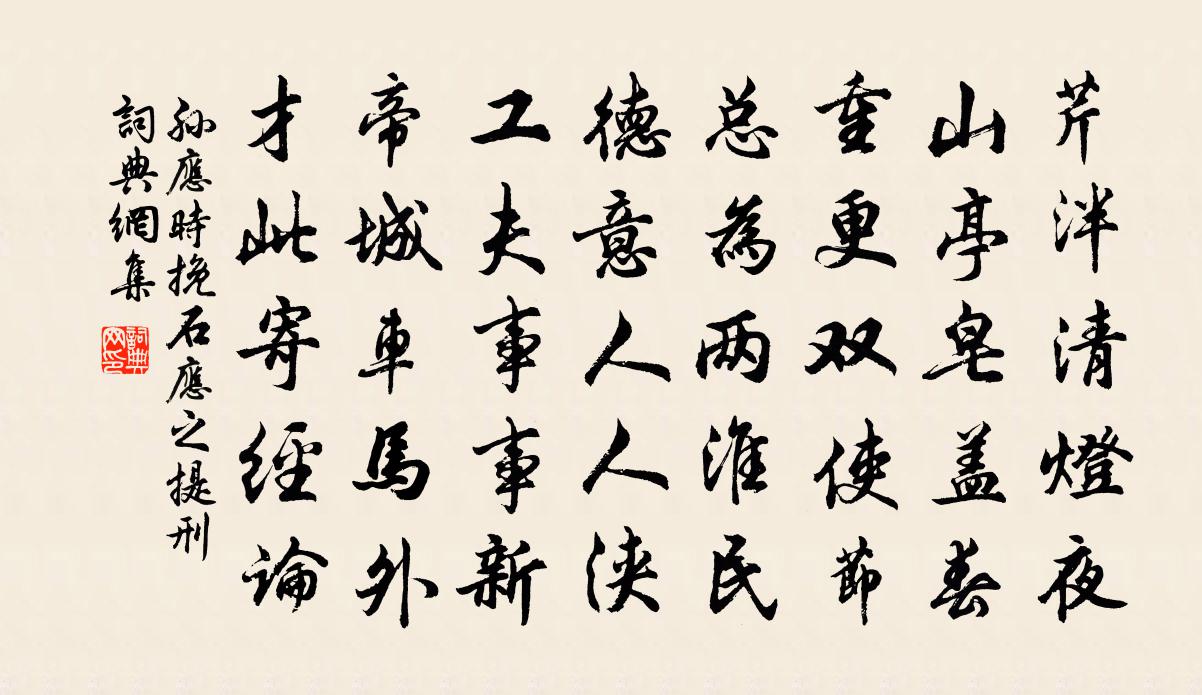 芹泮清燈夜
山亭皂盖春
重更双使節
总為两淮民
德意人人浹
工夫事事新
帝城車馬外
才此寄經論
孙應時挽石應之提刑
詞典網集
詞典網印